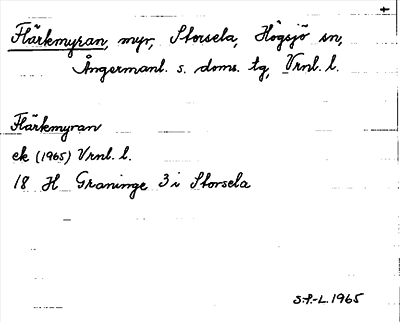 Flärkmyran, myr, Storsela, Högsjö sn,
Ångermanl. s. doms. tg, Vrnl. l.
Flärkmyran
ek (1965) Vrnl. l.
18 H Graninge 3 i Storsela
S.P.-L. 1965